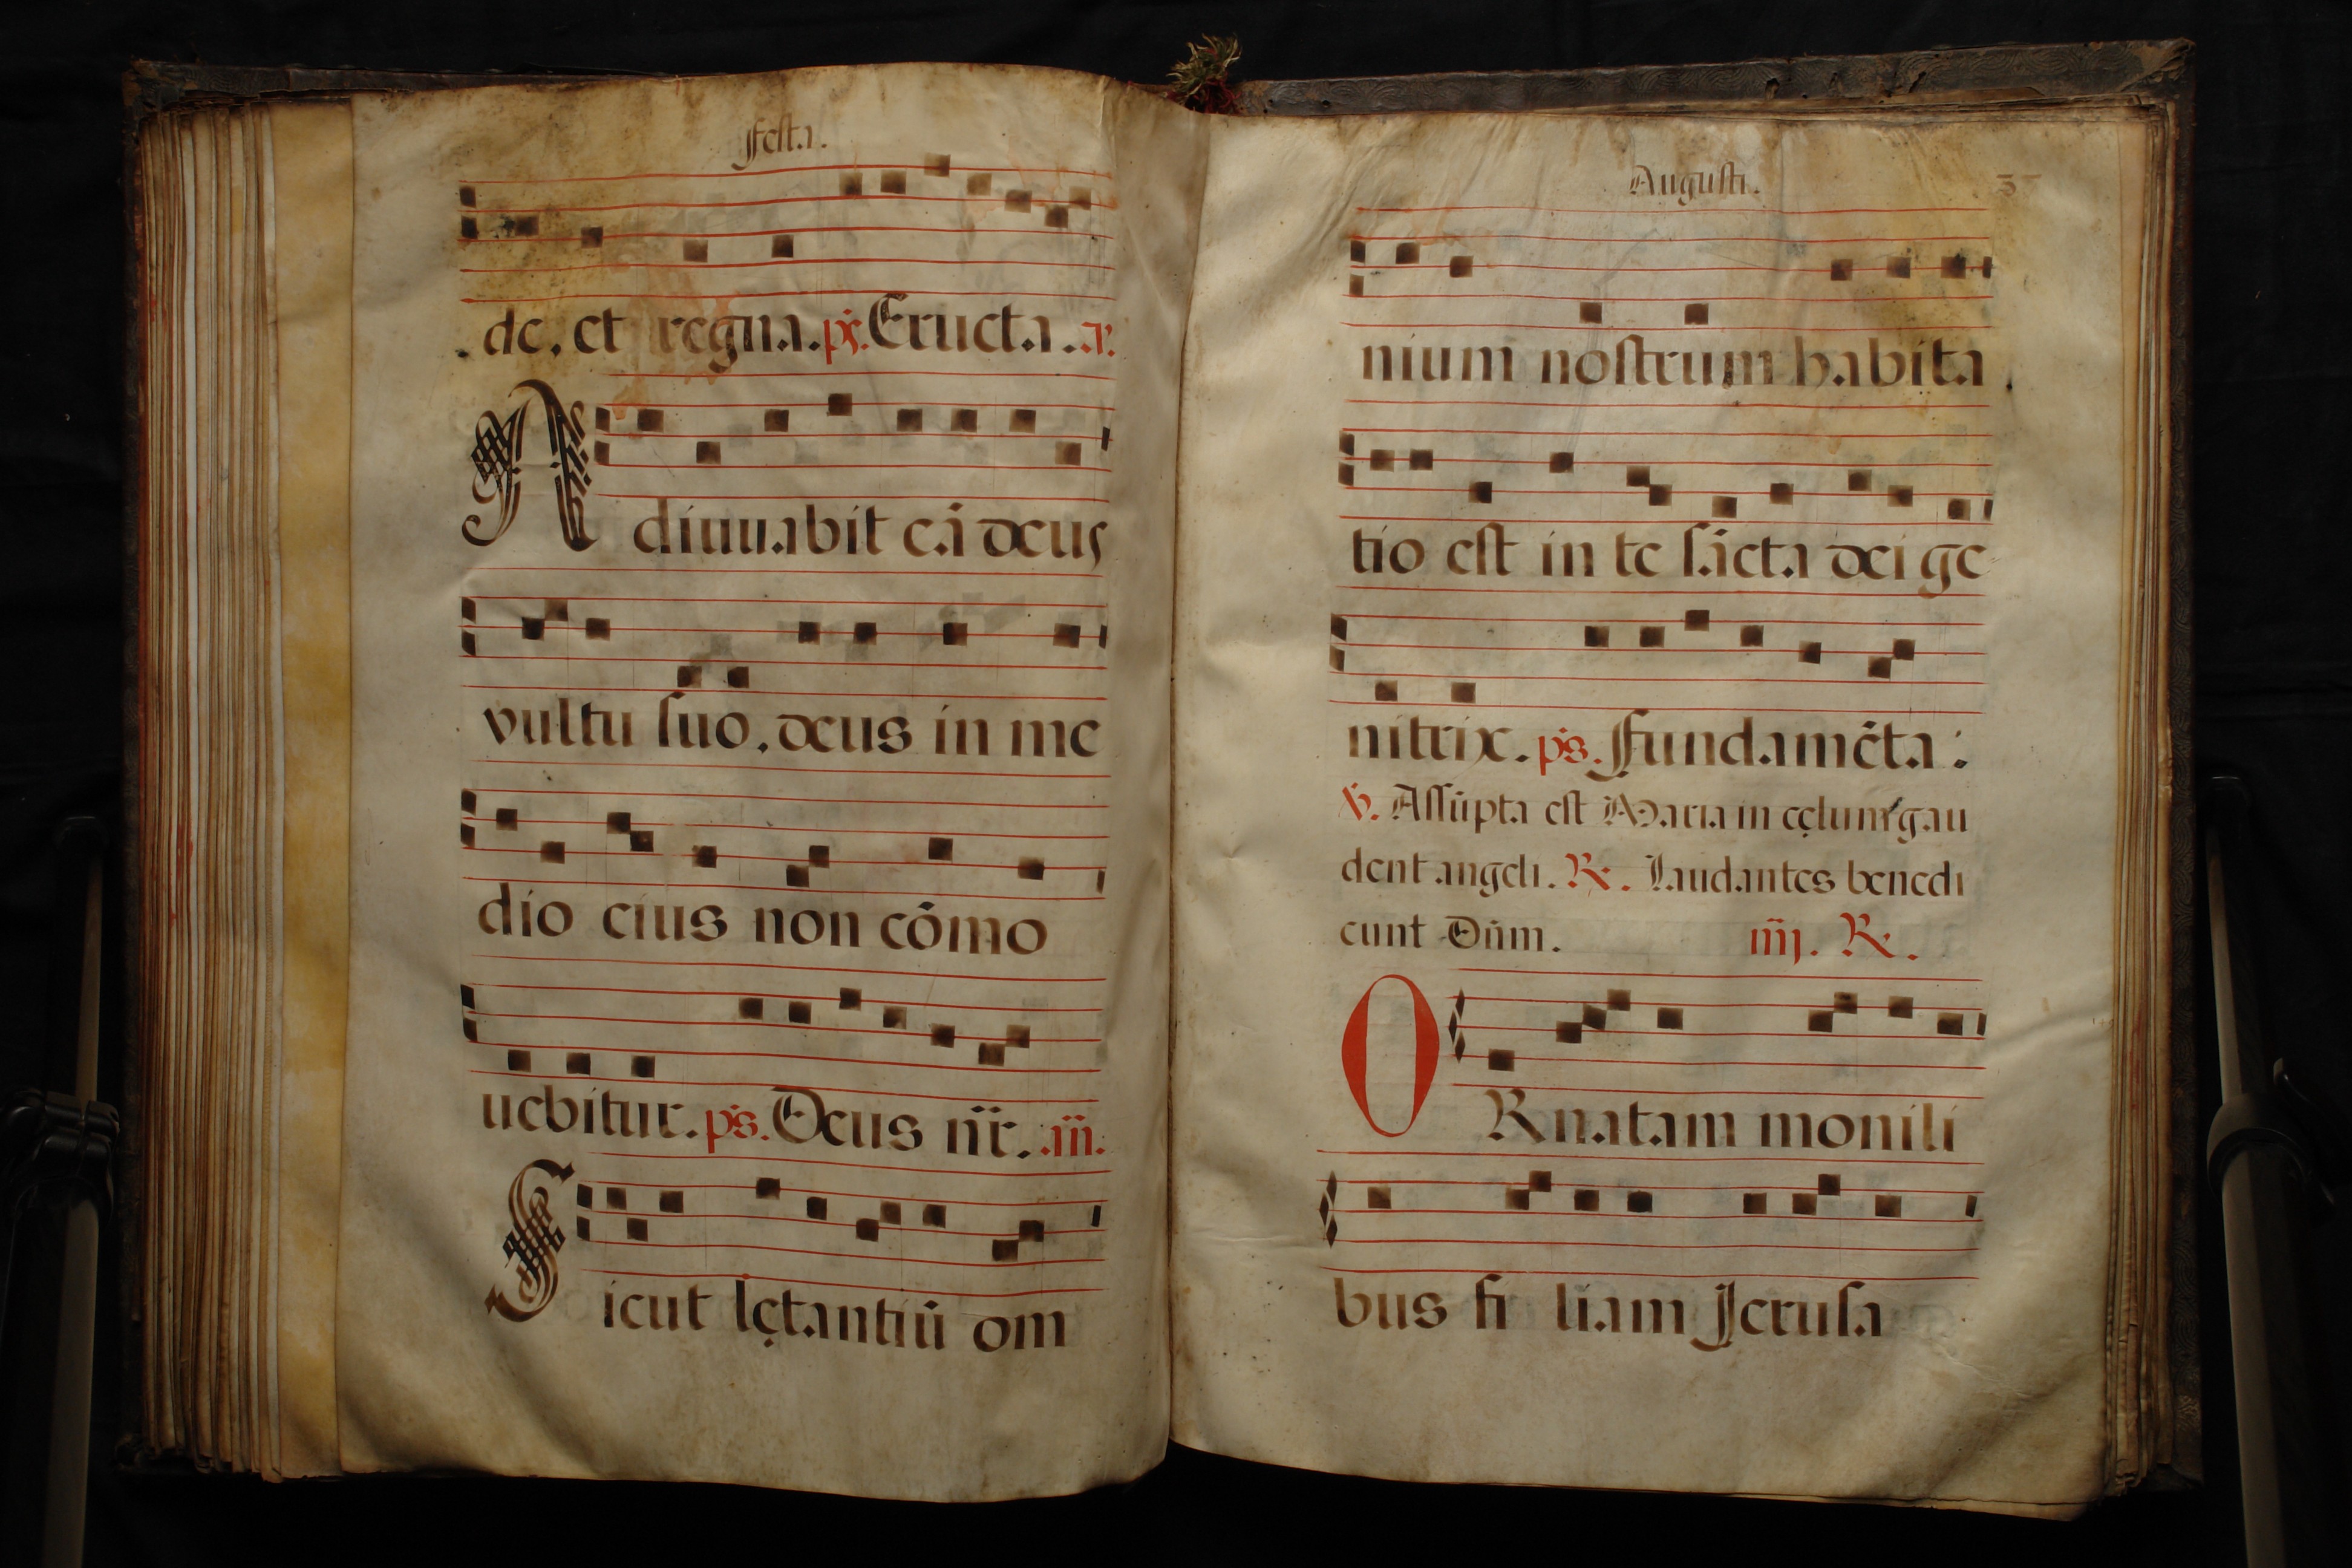 Festa.
de, et regna. ps. Eructa. a.
Adiuuabit eā deus
vultu suo, deus in me
dio eius non cōmo
uebitur. ps. Deus nr̄. añ.
Sicut lętantiū om
Augusti.
nium nostrum habita
tio est in te sācta dei ge
nitrix. ps. Fundamēta:
℣. Assūpta est Maria in cęlum gau
dent angeli. ℟. Laudantes benedi
cunt Dn̄m. iiij. ℟.
ORnatam monili
bus filiam Jerusa